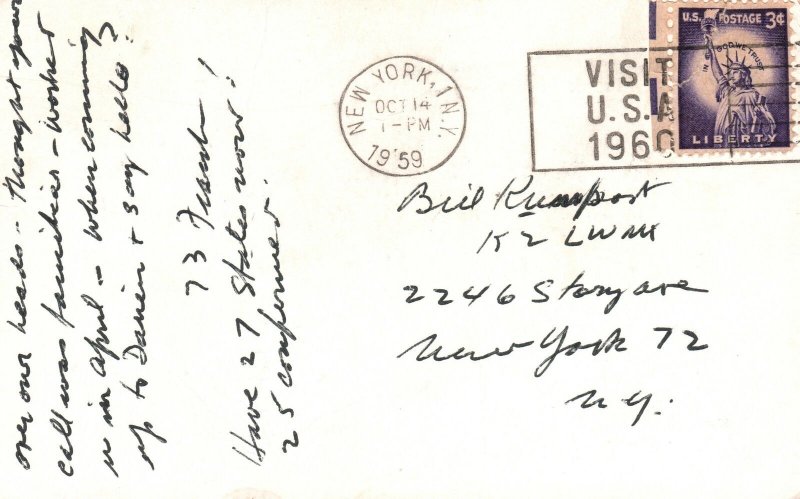 over our heads - Thought your
call was families - worked
u in april - when coming
up to Darien & say hello?
73 Frank!
Have 27 States now!
25 confermed.
NEW YORK, 1 N.Y.
OCT 14
1-PM
1959
VISIT
U.S.A
1960
U.S. POSTAGE 3¢
IN GOD WE TRUST
LIBERTY
Bill Kumpost
K2
2246 Story ave
New York 72
N.Y.